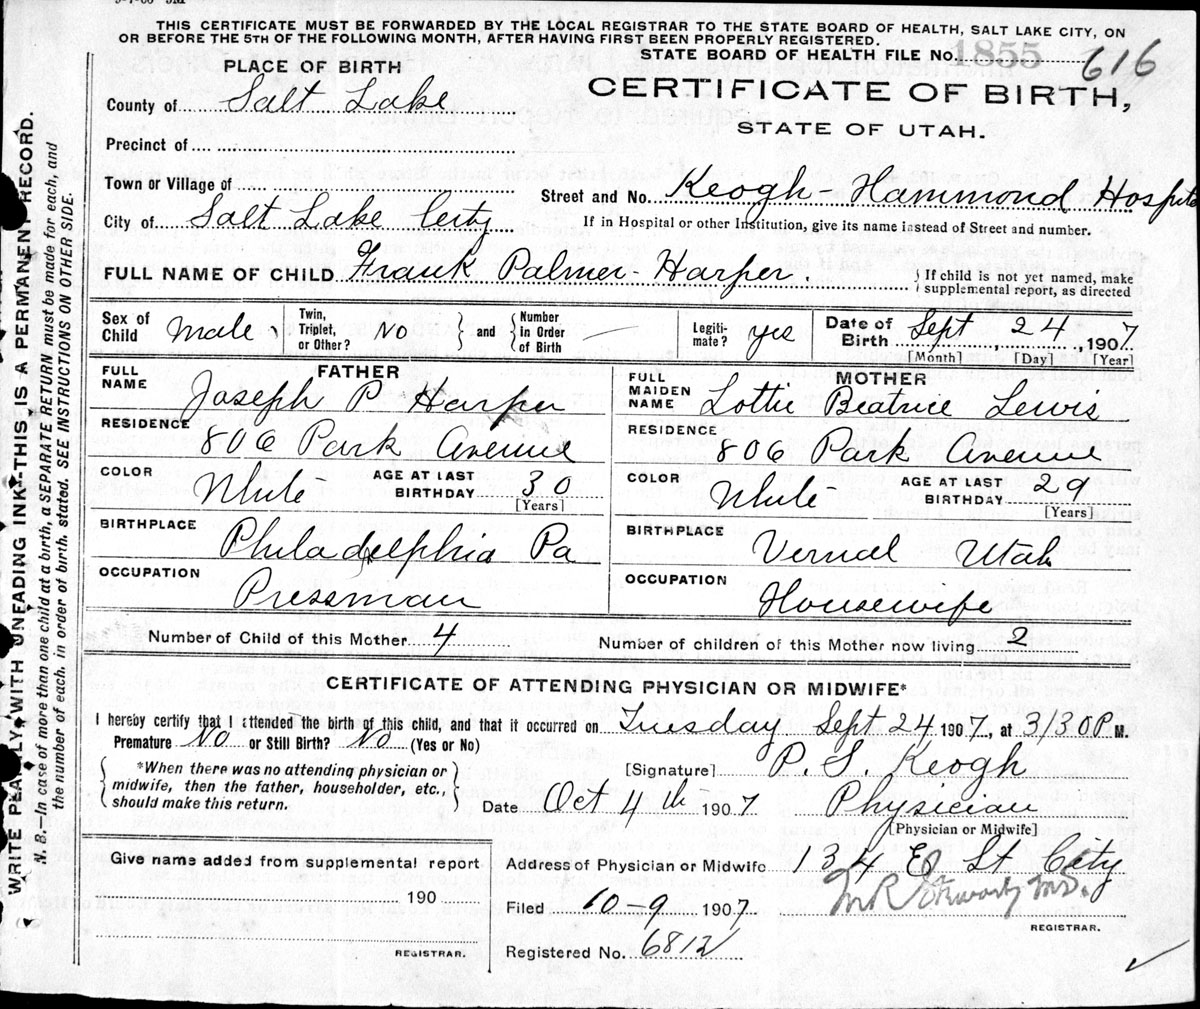 THIS CERTIFICATE MUST BE FORWARDED BY THE LOCAL REGISTRAR TO THE STATE BOARD OF HEALTH, SALT LAKE CITY, ON
OR BEFORE THE 5TH OF THE FOLLOWING MONTH, AFTER HAVING FIRST BEEN PROPERLY REGISTERED.
STATE BOARD OF HEALTH FILE No. 1855 616
PLACE OF BIRTH
CERTIFICATE OF BIRTH,
STATE OF UTAH.
County of Salt Lake
Precinct of
Town or Village of
Street and No. Keogh-Hammond Hospital
City of Salt Lake City
If in Hospital or other Institution, give its name instead of Street and number.
FULL NAME OF CHILD Frank Palmer-Harper.
If child is not yet named, make
supplemental report, as directed
Sex of Child male
Twin, Triplet, or Other? No
and
Number in Order of Birth —
Legiti-mate? yes
Date of Birth Sept, 24, 1907
[Month] [Day] [Year]
FATHER
FULL NAME Joseph P Harper
RESIDENCE 806 Park Avenue
COLOR White AGE AT LAST BIRTHDAY 30
[Years]
BIRTHPLACE Philadelphia Pa
OCCUPATION Pressman
MOTHER
FULL MAIDEN NAME Lottie Beatrice Lewis
RESIDENCE 806 Park Avenue
COLOR White AGE AT LAST BIRTHDAY 29
[Years]
BIRTHPLACE Vernal Utah
OCCUPATION Housewife
Number of Child of this Mother 4 Number of children of this Mother now living 2
CERTIFICATE OF ATTENDING PHYSICIAN OR MIDWIFE*
I hereby certify that I attended the birth of this child, and that it occurred on Tuesday Sept 24 1907, at 3/30 P M.
Premature No or Still Birth? No (Yes or No)
*When there was no attending physician or
midwife, then the father, householder, etc.,
should make this return.
[Signature] P. S. Keogh
Date Oct 4th 1907 Physician
[Physician or Midwife]
Give name added from supplemental report
190
REGISTRAR.
Address of Physician or Midwife 134 E St City
Filed 10-9 1907
REGISTRAR.
Registered No. 6812
WRITE PLAINLY WITH UNFADING INK-THIS IS A PERMANENT RECORD.
N. B.—In case of more than one child at a birth, a SEPARATE RETURN must be made for each, and
the number of each. in order of birth. stated. SEE INSTRUCTIONS ON OTHER SIDE.